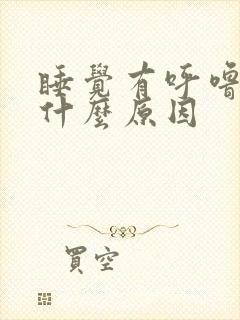 睡覺有呼嚕
什麼原因
買空